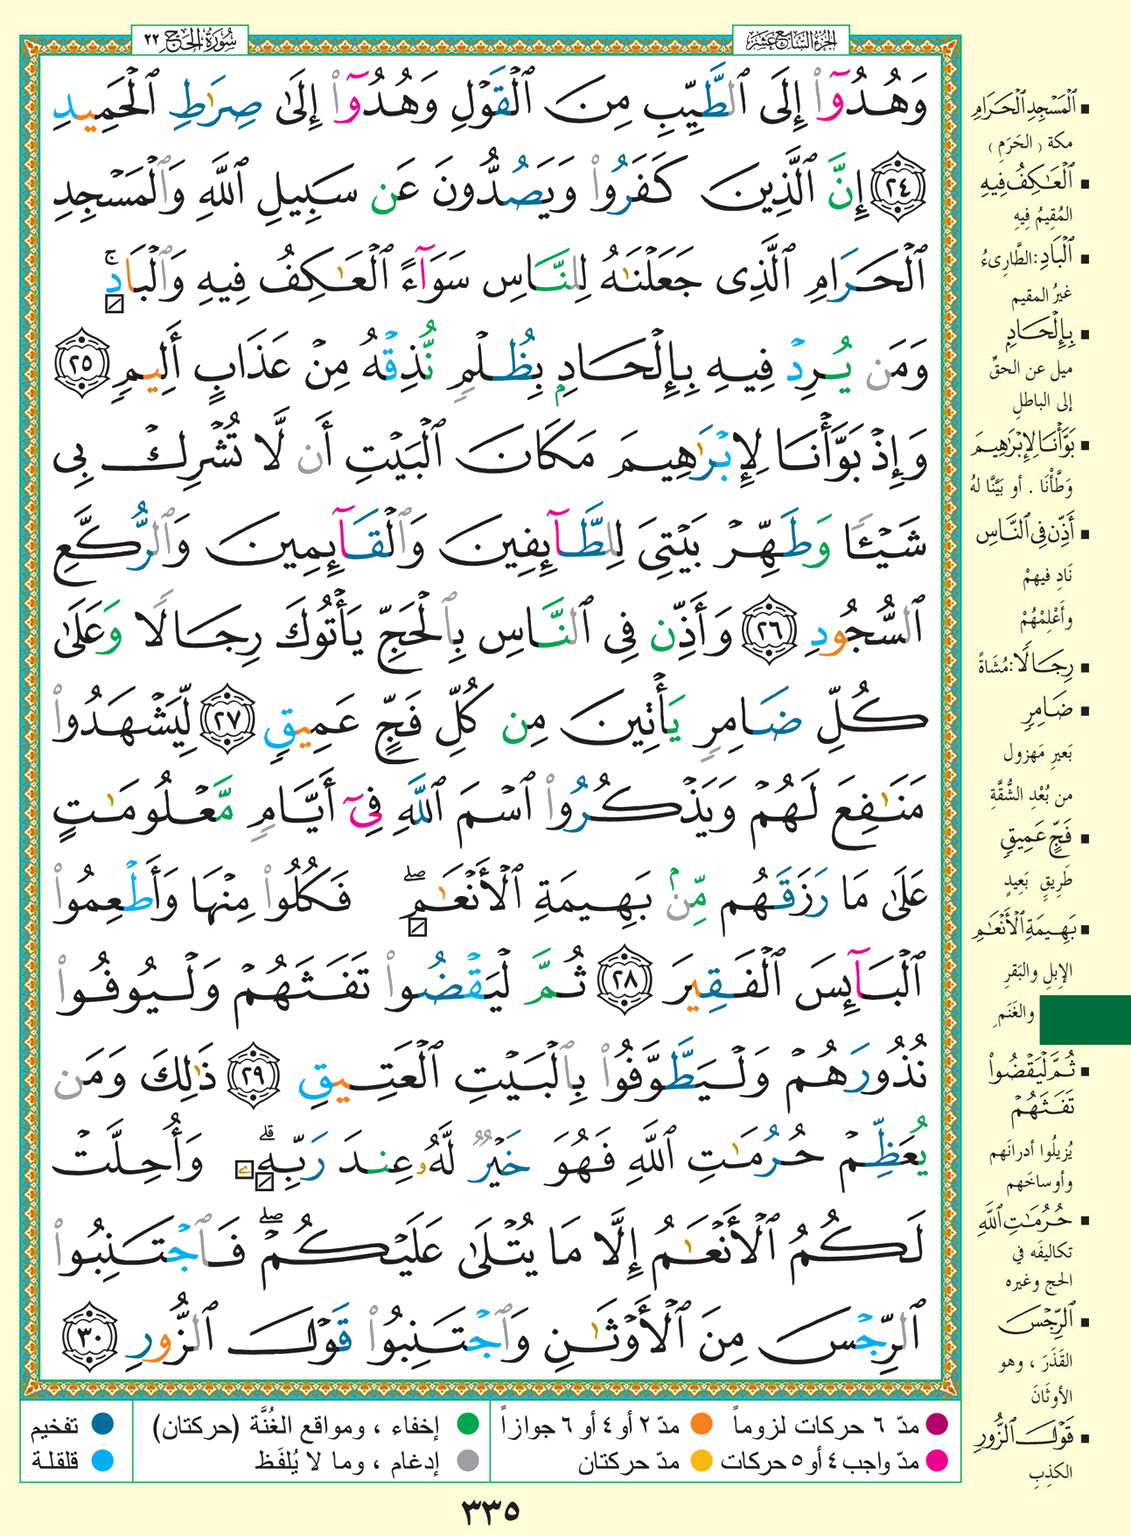 الجزء السابع عشر
سورة الحج ٢٢
وَهُدُوٓا۟ إِلَى ٱلطَّيِّبِ مِنَ ٱلْقَوْلِ وَهُدُوٓا۟ إِلَىٰ صِرَٰطِ ٱلْحَمِيدِ
٢٤ إِنَّ ٱلَّذِينَ كَفَرُوا۟ وَيَصُدُّونَ عَن سَبِيلِ ٱللَّهِ وَٱلْمَسْجِدِ
ٱلْحَرَامِ ٱلَّذِى جَعَلْنَٰهُ لِلنَّاسِ سَوَآءً ٱلْعَٰكِفُ فِيهِ وَٱلْبَادِ ۚ
وَمَن يُرِدْ فِيهِ بِإِلْحَادٍۭ بِظُلْمٍ نُّذِقْهُ مِنْ عَذَابٍ أَلِيمٍ ٢٥
وَإِذْ بَوَّأْنَا لِإِبْرَٰهِيمَ مَكَانَ ٱلْبَيْتِ أَن لَّا تُشْرِكْ بِى
شَيْـًٔا وَطَهِّرْ بَيْتِىَ لِلطَّآئِفِينَ وَٱلْقَآئِمِينَ وَٱلرُّكَّعِ
ٱلسُّجُودِ ٢٦ وَأَذِّن فِى ٱلنَّاسِ بِٱلْحَجِّ يَأْتُوكَ رِجَالًا وَعَلَىٰ
كُلِّ ضَامِرٍ يَأْتِينَ مِن كُلِّ فَجٍّ عَمِيقٍ ٢٧ لِّيَشْهَدُوا۟
مَنَٰفِعَ لَهُمْ وَيَذْكُرُوا۟ ٱسْمَ ٱللَّهِ فِىٓ أَيَّامٍ مَّعْلُومَٰتٍ
عَلَىٰ مَا رَزَقَهُم مِّنۢ بَهِيمَةِ ٱلْأَنْعَٰمِ ۖ فَكُلُوا۟ مِنْهَا وَأَطْعِمُوا۟
ٱلْبَآئِسَ ٱلْفَقِيرَ ٢٨ ثُمَّ لْيَقْضُوا۟ تَفَثَهُمْ وَلْيُوفُوا۟
نُذُورَهُمْ وَلْيَطَّوَّفُوا۟ بِٱلْبَيْتِ ٱلْعَتِيقِ ٢٩ ذَٰلِكَ وَمَن
يُعَظِّمْ حُرُمَٰتِ ٱللَّهِ فَهُوَ خَيْرٌ لَّهُۥ عِندَ رَبِّهِۦ ۗ وَأُحِلَّتْ
لَكُمُ ٱلْأَنْعَٰمُ إِلَّا مَا يُتْلَىٰ عَلَيْكُمْ ۖ فَٱجْتَنِبُوا۟
ٱلرِّجْسَ مِنَ ٱلْأَوْثَٰنِ وَٱجْتَنِبُوا۟ قَوْلَ ٱلزُّورِ ٣٠
ٱلْمَسْجِدِ ٱلْحَرَامِ
مكة (الحَرَم)
ٱلْعَٰكِفُ فِيهِ
المُقِيمُ فِيهِ
ٱلْبَادِ: الطَّارِئُ
غيرُ المقيم
بِإِلْحَادٍ
ميل عن الحقِّ
إلى الباطلِ
بَوَّأْنَا لِإِبْرَٰهِيمَ
وَطَّأْنَا . أو بَيَّنَّا لهُ
أَذِّن فِى ٱلنَّاسِ
نَادِ فيهِمْ
وأَعْلِمْهُمْ
رِجَالًا: مُشَاةً
ضَامِرٍ
بَعيرٍ مَهزول
من بُعْدِ الشُّقَّةِ
فَجٍّ عَمِيقٍ
طَرِيقٍ بَعِيدٍ
بَهِيمَةِ ٱلْأَنْعَٰمِ
الإبلِ والبَقرِ
والغَنَمِ
ثُمَّ لْيَقْضُوا۟
تَفَثَهُمْ
يُزيلُوا أدرانَهم
وأوساخَهم
حُرُمَٰتِ ٱللَّهِ
تكاليفَه في
الحج وغيره
ٱلرِّجْسَ
القَذَرَ ، وهو
الأوثَانَ
قَوْلَ ٱلزُّورِ
الكذبِ
مدّ ٦ حركات لزوماً
مدّ ٢ أو ٤ أو ٦ جوازاً
إخفاء ، ومواقع الغُنَّة (حركتان)
تفخيم
مدّ واجب ٤ أو ٥ حركات
مدّ حركتان
إدغام ، وما لا يُلفَظ
قلقلة
٣٣٥